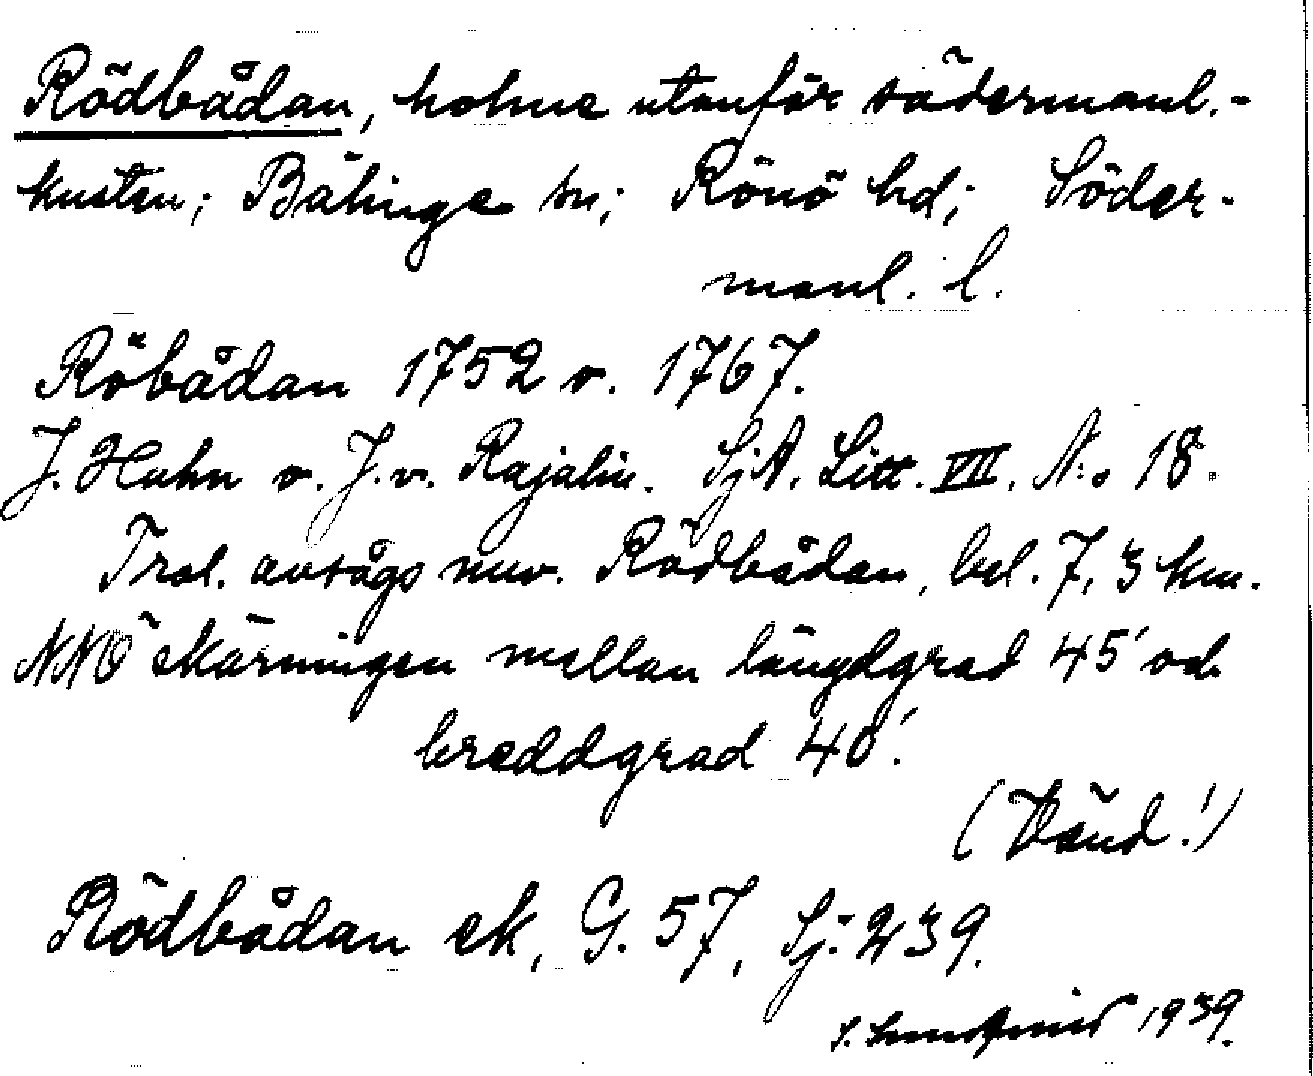 Rödbådan, holme utanför södermanl.-
kusten; Bälinge sn; Rönö hd; Söder-
manl. l.
Röbådan 1752 o. 1767.
J. Hahn o. J. v. Rajalin. SjA. Litt. VII. N:o 18.
Trol. avsågs nuv. Rödbådan, bel. 7,3 km.
NNÖ skärningen mellan längdgrad 45' och
breddgrad 40'.
(Vänd!)
Rödbådan sk, G. 57, Sj: 239.
S. Lundqvist 1939.